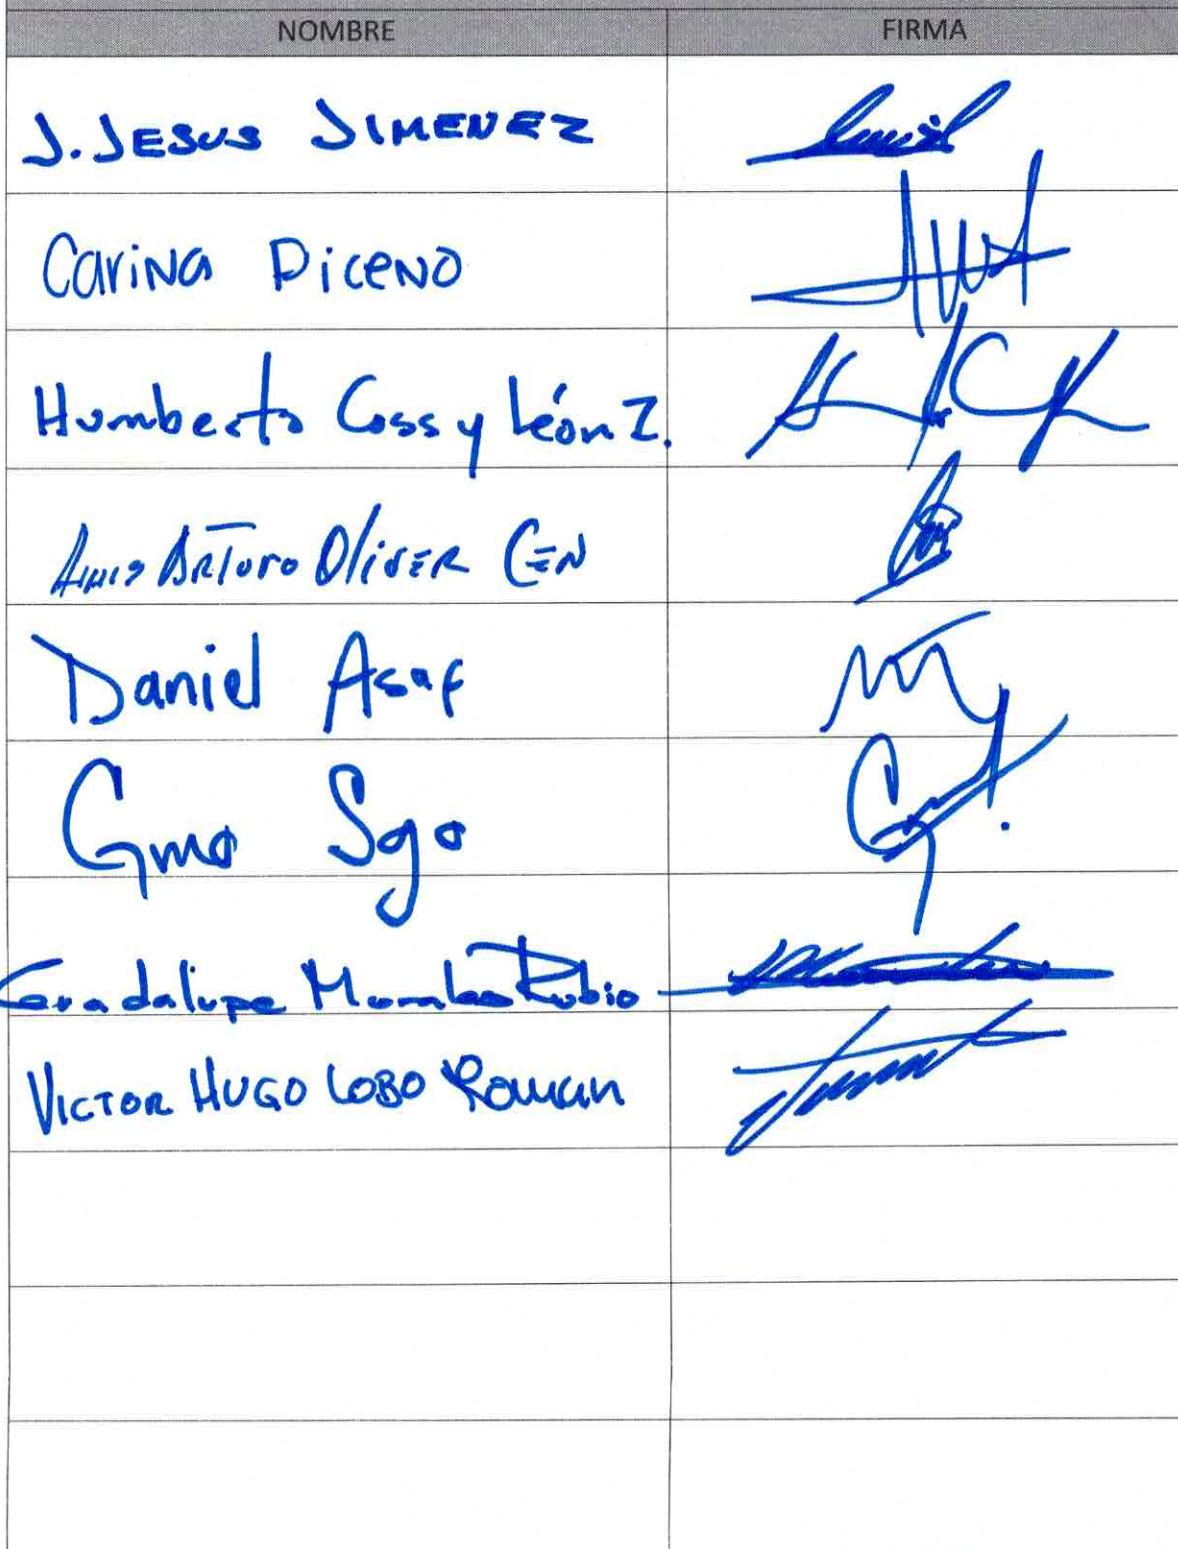 NOMBRE FIRMA
J. JESUS JIMENEZ
Carina Piceno
Humberto Coss y León Z.
Luis Arturo Oliver Cen
Daniel Asaf
Gmo Sgo
Guadalupe Morales Rubio
VICTOR HUGO LOBO Roman